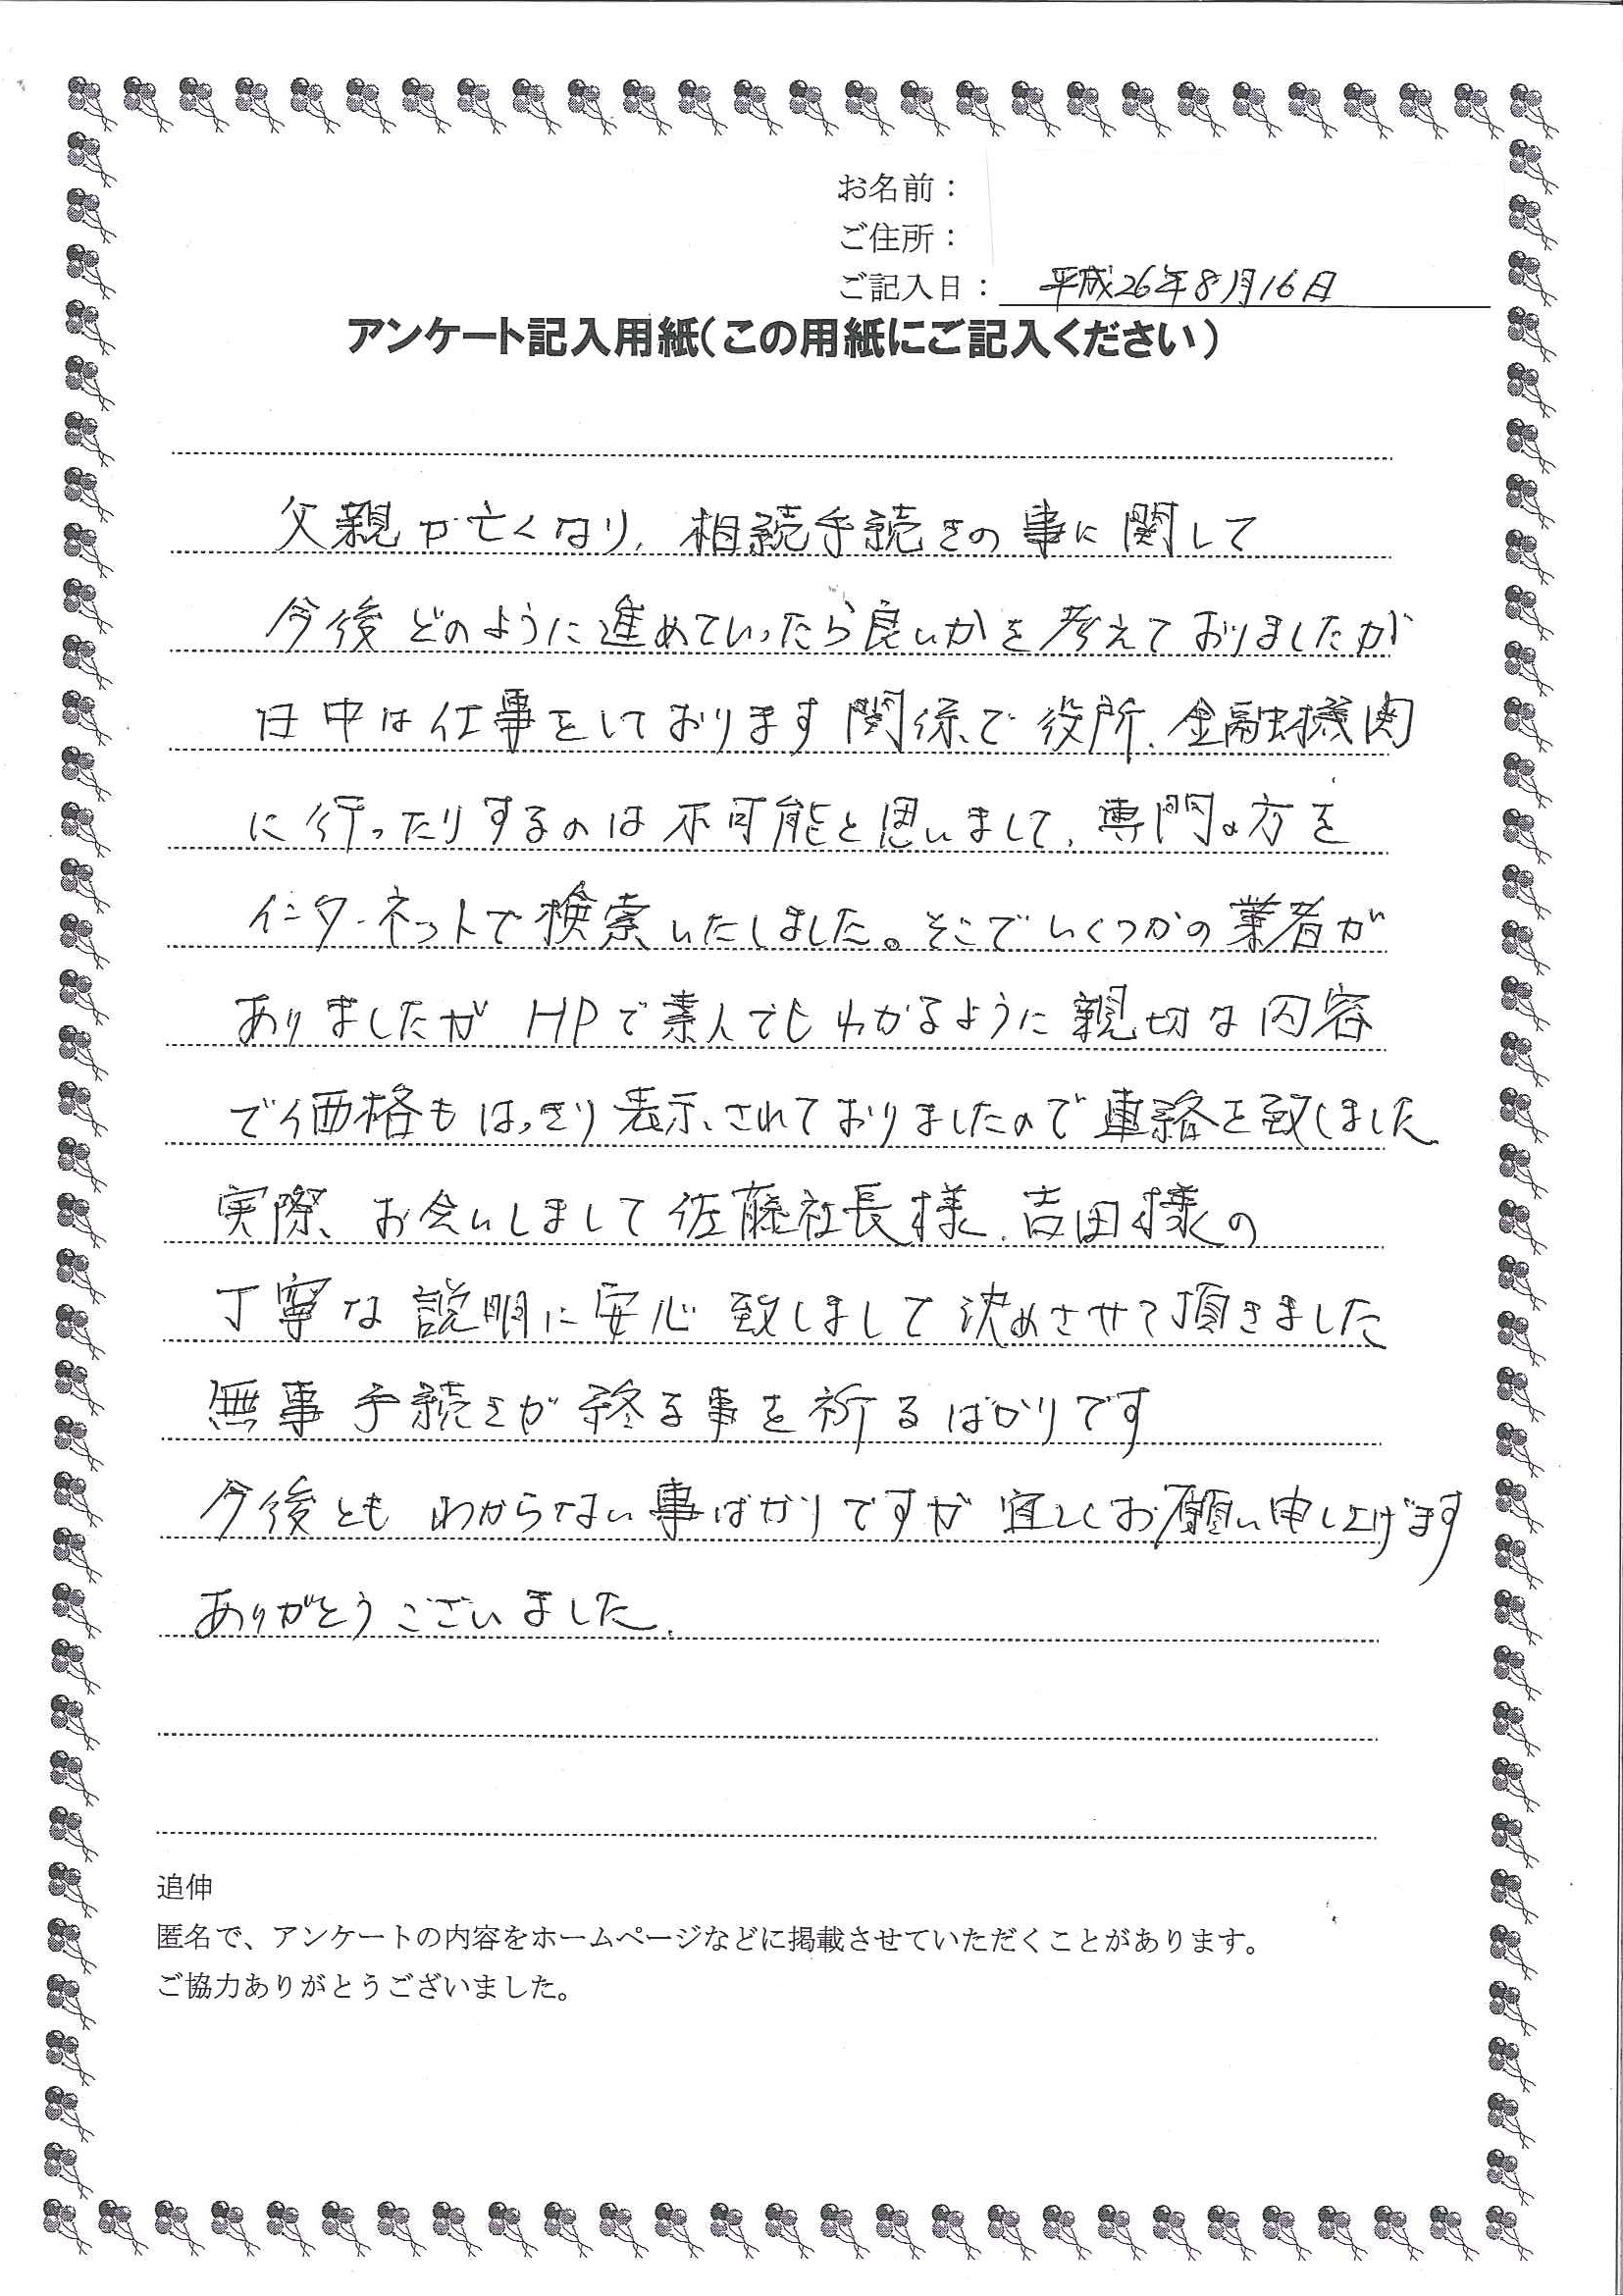 お名前：
ご住所：
ご記入日：平成26年8月16日
アンケート記入用紙（この用紙にご記入ください）
父親が亡くなり、相続手続きの事に関して
今後どのように進めていったら良いかを考えておりましたが
日中は仕事をしております関係で役所、金融機関
に行ったりするのは不可能と思いまして、専門の方を
インターネットで検索いたしました。そこでいくつかの業者が
ありましたがHPで素人でもわかるように親切な内容
で価格もはっきり表示されておりましたので連絡を致しました
実際、お会いしまして佐藤社長様、吉田様の
丁寧な説明に安心致しまして決めさせて頂きました
無事手続きが終る事を祈るばかりです
今後ともわからない事ばかりですが宜しくお願い申し上げます
ありがとうございました。
追伸
匿名で、アンケートの内容をホームページなどに掲載させていただくことがあります。
ご協力ありがとうございました。